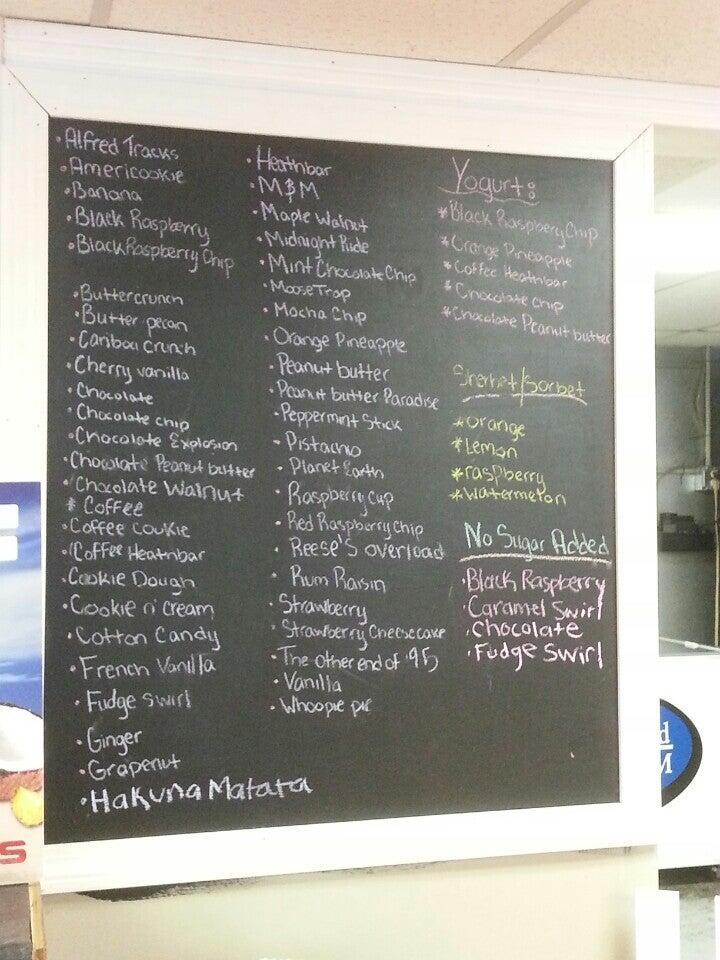 •Alfred Tracks
•Americookie
•Banana
•Black Raspberry
•Black Raspberry Chip
•Buttercrunch
•Butter pecan
•Caribou Crunch
•Cherry vanilla
•Chocolate
•Chocolate chip
•Chocolate Explosion
•Chocolate Peanut butter
•Chocolate Walnut
* Coffee
•Coffee Cookie
•Coffee Heathbar
•Cookie Dough
•Cookie n' cream
•Cotton Candy
•French Vanilla
•Fudge swirl
•Ginger
•Grapenut
•Hakuna Matata
•Heathbar
•M&M
•Maple Walnut
•Midnight Ride
•Mint Chocolate Chip
•Moose Trap
•Mocha Chip
•Orange Pineapple
•Peanut butter
•Peanut butter Paradise
•Peppermint Stick
•Pistachio
•Planet Earth
•Raspberry Cup
•Red Raspberry Chip
•Reese's overload
•Rum Raisin
•Strawberry
•Strawberry Cheesecake
•The other end of '95
•Vanilla
•Whoopie pie
Yogurt:
*Black Raspbery Chip
*Orange Pineapple
*Coffee Heathbar
*Chocolate chip
*Chocolate Peanut butter
Sherbet/Sorbet
*orange
*Lemon
*raspberry
*watermelon
No Sugar Added
•Black Raspberry
•Caramel Swirl
•Chocolate
•Fudge swirl